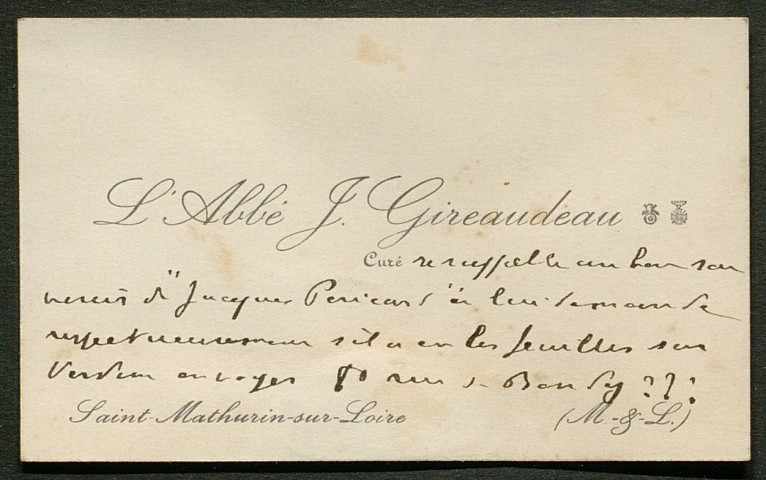 L'Abbé J. Gireaudeau
Curé se rappelle au bon sou
venir de "Jacques Pericard" et lui demande
respectueusement s'il a eu les feuilles sur
Verdun envoyés rue de Bondy ???
Saint-Mathurin-sur-Loire (M.-&-L.)